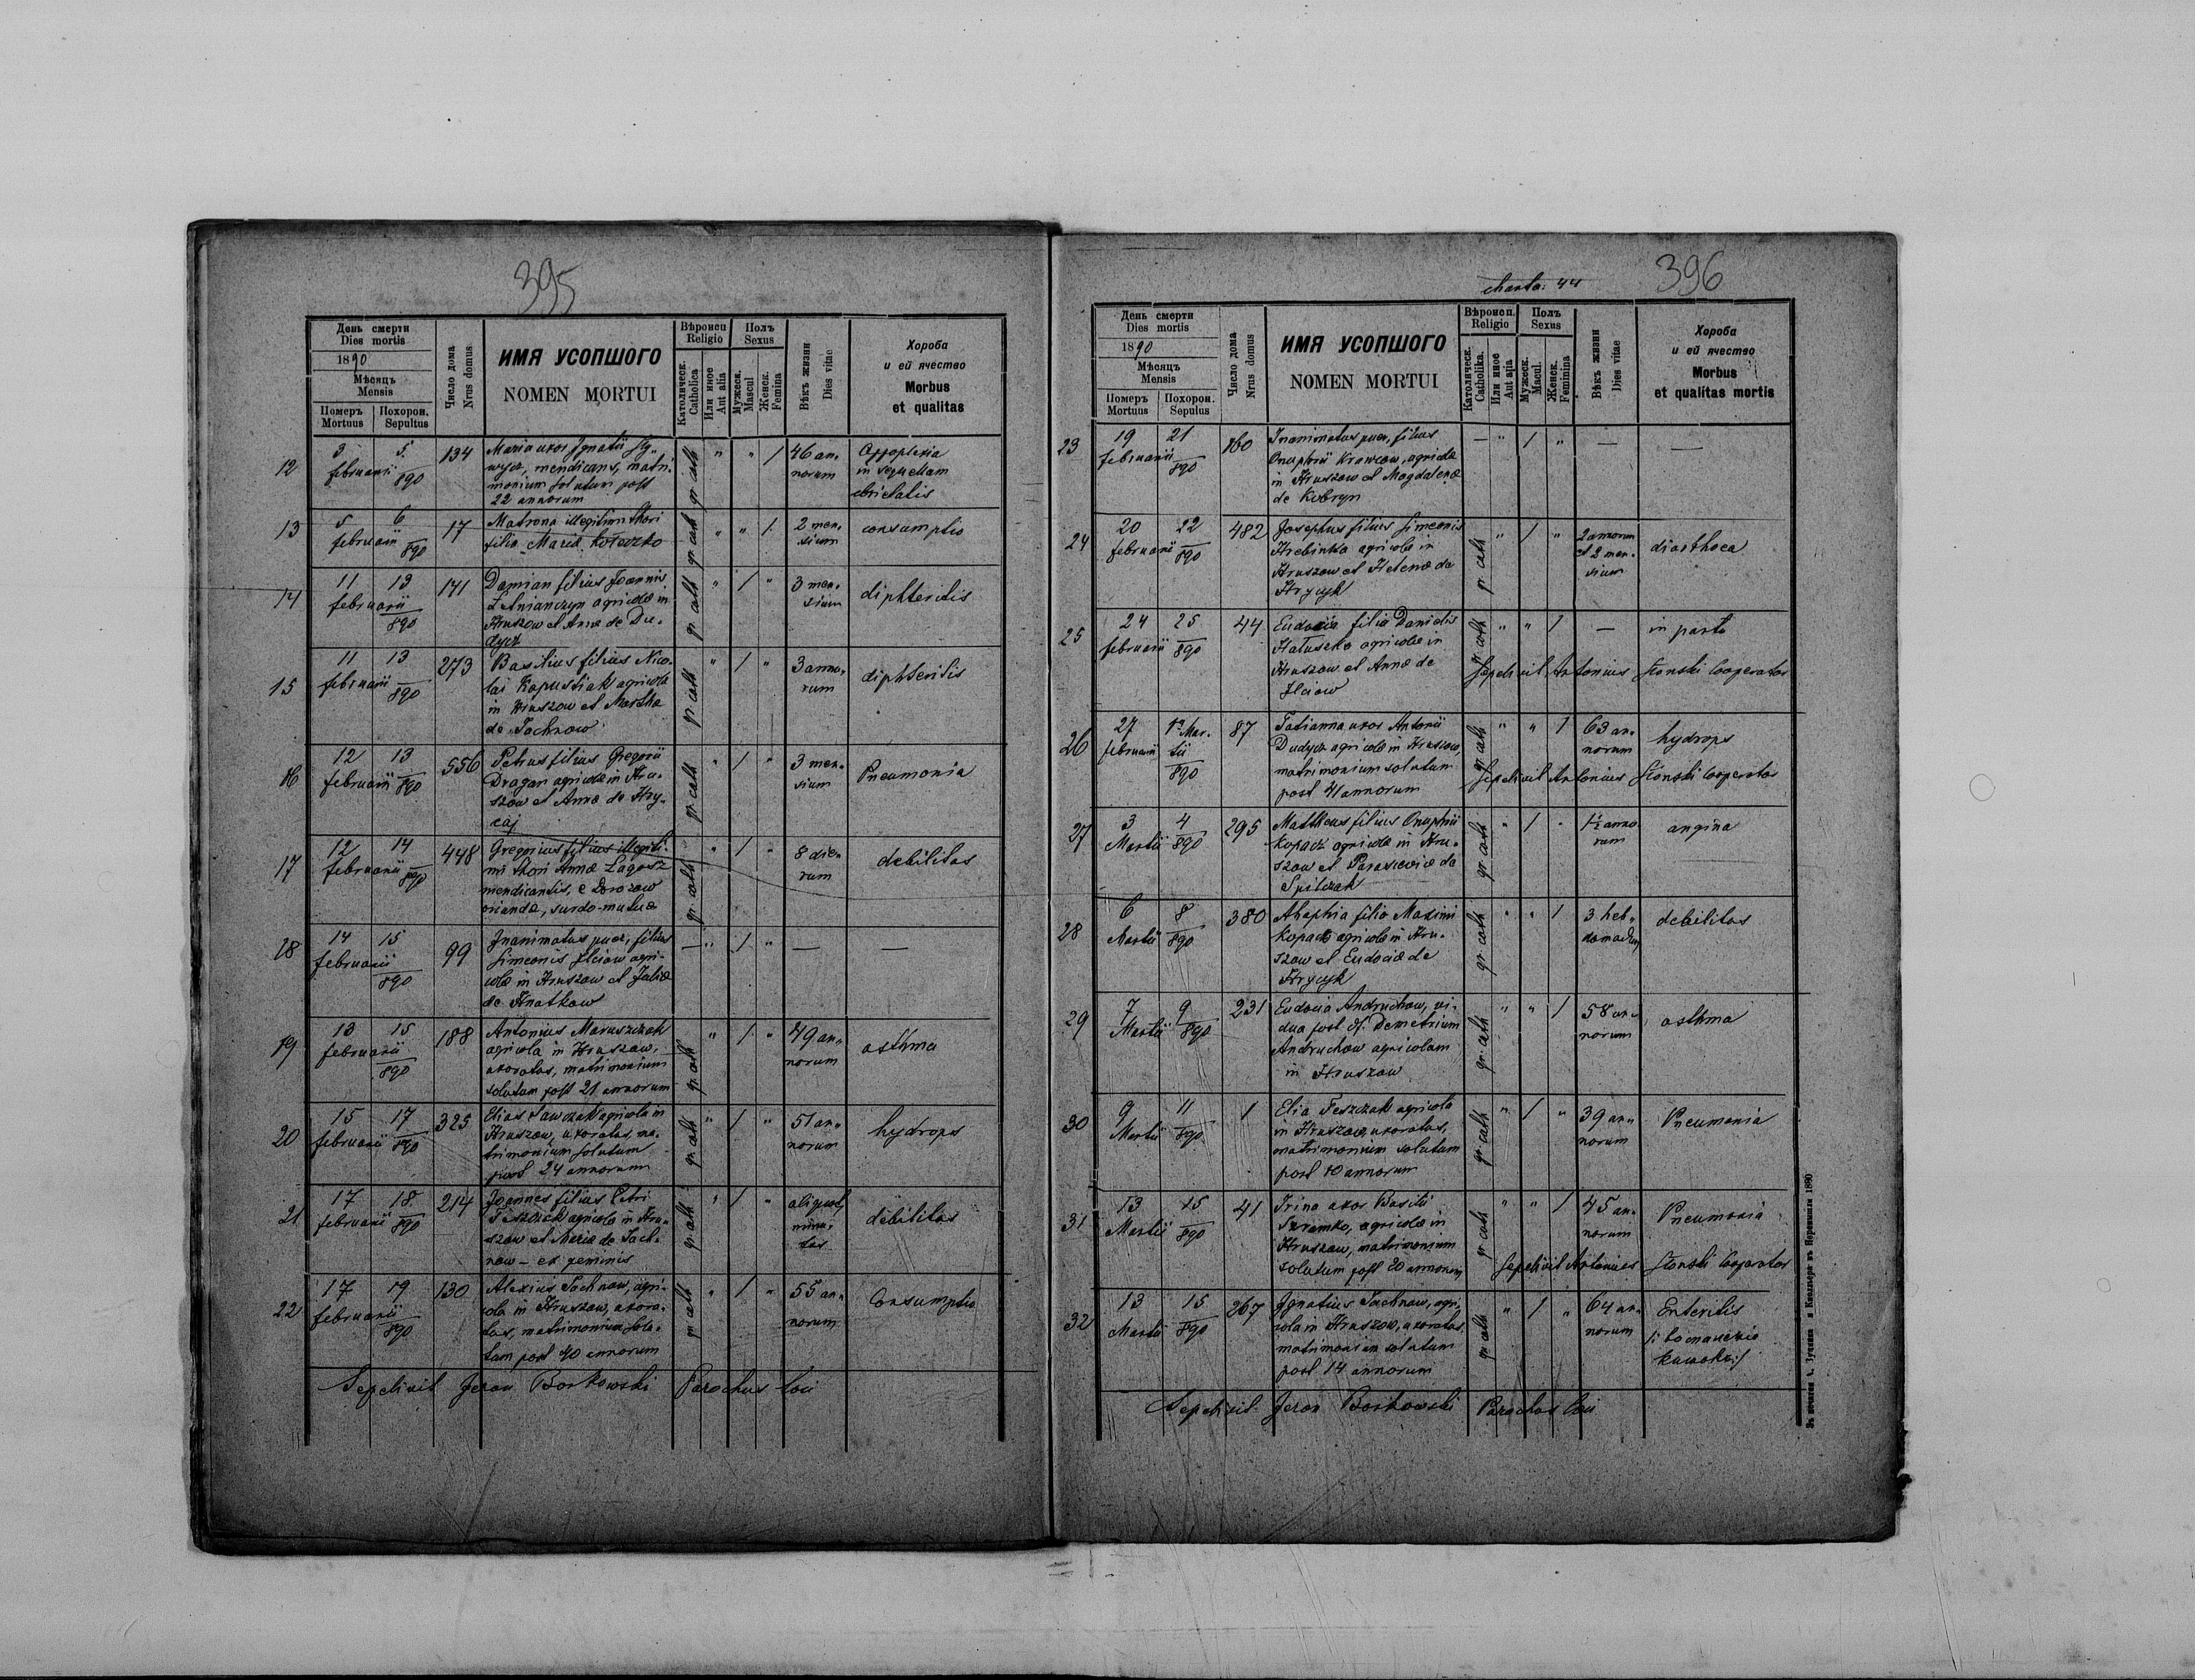 395
День смерти
Dies mortis
1890
Мѣсяцъ
Mensis
Померъ Похорон.
Mortuus Sepultus
Число дома
Nrus domus
ИМЯ УСОПШОГО
NOMEN MORTUI
Вѣроисп
Religio
Католическ.
Catholica
Или иное
Aut alia
Полъ
Sexus
Мужеск.
Mascul
Женск.
Femina
Вѣкъ жизни
Dies vitae
Хороба
и ей ячество
Morbus
et qualitas
12 3 februarii 5 890 134
Maria uxor Ignatii
mendicans, matri-
monium solutum post
22 annorum
gr. cath " " 1
46 an-
norum
Appoplexia
in sequellam
ebrietatis
13 5 februarii 6 890 17
Matrona illegitimi thori
filia Mariæ Koteczko
gr. cath " " 1
2 men-
sium
consumptio
14 11 februarii 13 890 141
Damian filius Joannis
agricolæ in
Hruszow et Annæ de Du-
dycz
gr. cath " 1 "
3 men-
sium
diphteritis
15 11 februarii 13 890 273
Basilius filius Nico-
lai Kapustiak agricolæ
in Hruszow et Marthæ
de Jachnow
gr. cath " 1 "
3 anno-
rum
diphteritis
16 12 februarii 13 890 556
Petrus filius Gregorii
Dragan agricolæ in Hru-
szow et Annæ de Hry-
caj
gr. cath " 1 "
3 men-
sium
Pneumonia
17 12 februarii 14 890 448
Gregorius filius illegiti-
mi thori Annæ Lagosz
mendicantis, e Dorozow
oriandæ, surdo-mutuæ
gr. cath " 1 "
8 die-
rum
debilitas
18 14 februarii 15 890 99
Inanimatus puer, filius
Simeonis Ilciow agri-
colæ in Hruszow et Juliæ
de Hnatkow
— " 1 " — —
19 13 februarii 15 890 188
Antonius Maruszczak
agricola in Hruszow,
uxoratus, matrimonium
solutum post 21 annorum
gr. cath " 1 "
49 an-
norum
asthma
20 15 februarii 17 890 325
Elias Sawczak agricola in
Hruszow, uxoratus, ma-
trimonium solutum
post 24 annorum
gr. cath " 1 "
51 an-
norum
hydrops
21 17 februarii 18 890 214
Joannes filius Petri
Teszczak agricolæ in Hru-
szow et Mariæ de Jach-
now – ex geminis
gr. cath " 1 "
aliquot
minu-
tas
debilitas
22 17 februarii 19 890 130
Alexius Jachnow, agri-
cola in Hruszow, uxora-
tus, matrimonium solu-
tum post 40 annorum
gr. cath " 1 "
55 an-
norum
Consumptio
Sepelivit Jeron Borkowski Parochus loci
charta: 44
396
День смерти
Dies mortis
1890
Мѣсяцъ
Mensis
Померъ Похорон.
Mortuus Sepultus
Число дома
Nrus domus
ИМЯ УСОПШОГО
NOMEN MORTUI
Вѣроисп.
Religio
Католическ.
Catholika.
Или иное
Aut alia
Полъ
Sexus
Мужеск.
Macul.
Женск.
Feminina
Вѣкъ жизни
Dies vitae
Хороба
и ей ячество
Morbus
et qualitas mortis
23 19 februarii 21 890 160
Inanimatus puer, filius
Onuphrii Krawcow, agricolæ
in Hruszow et Magdalenæ
de Kobryn
— " 1 " — —
24 20 februarii 22 890 482
Josephus filius Simeonis
Hrebinka agricolæ in
Hruszow et Helenæ de
Hrycyk
gr. cath " 1 "
2 annorum
et 2 men-
sium
diarrhoea
25 24 februarii 25 890 44
Eudocia filia Danielis
Hatuszka agricolæ in
Hruszow et Annæ de
Ilciow
gr. cath " " 1 —
in partu
Sepelivit Antonius Slonski Cooperator
26 27 februarii 1º Mar-
tii
890 87
Tatianna uxor Antonii
Dudycz agricolæ in Hruszow,
matrimonium solutum
post 41 annorum
gr. cath " " 1
63 an-
norum
hydrops
Sepelivit Antonius Slonski Cooperator
27 3 Martii 4 890 295
Mattheus filius Onuphrii
Kopacz agricolæ in Hru-
szow et Parasceviæ de
Spilczak
gr. cath " 1 "
1½ anno-
rum
angina
28 6 Martii 8 890 380
Ahaphia filia Maximi
Kopacz agricolæ in Hru-
szow et Eudociæ de
Hrycyk
gr. cath " " 1
3 heb-
domadum
debilitas
29 7 Martii 9 890 231
Eudocia Andruchow, vi-
dua post Demetrium
Andruchow agricolam
in Hruszow
gr. cath " " 1
58 an-
norum
asthma
30 9 Martii 11 890 1
Elia Teszczak agricola
in Hruszow, uxoratus,
matrimonium solutum
post 10 annorum
gr. cath " 1 "
39 an-
norum
Pneumonia
31 13 Martii 15 890 41
Irina uxor Basilii
Szramko, agricolæ in
Hruszow, matrimonium
solutum post 20 annorum
gr. cath " " 1
45 an-
norum
Pneumonia
Sepelivit Antonius Slonski Cooperator
32 13 Martii 15 890 267
Ignatius Jachnow, agri-
cola in Hruszow, uxoratus,
matrimonium solutum
post 14 annorum
gr. cath " 1 "
64 an-
norum
Enteritis
Sepelivit Jeron Borkowski Parochus loci